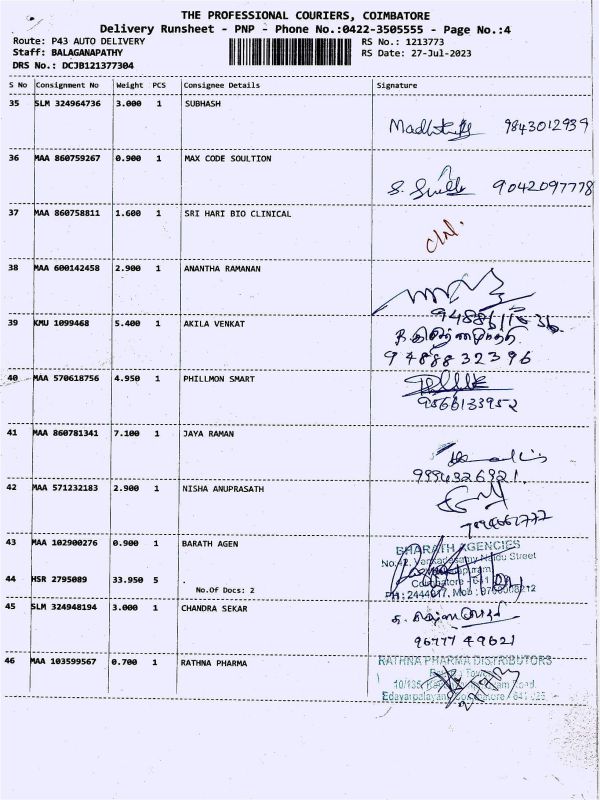 THE PROFESSIONAL COURIERS, COIMBATORE
Delivery Runsheet - PNP - Phone No.:0422-3505555 - Page No.:4
Route: P43 AUTO DELIVERY RS No.: 1213773
Staff: BALAGANAPATHY RS Date: 27-Jul-2023
DRS No.: DCJB121377304
S No Consignment No Weight PCS Consignee Details Signature
35 SLM 324964736 3.000 1 SUBHASH
9843012939
36 MAA 860759267 0.900 1 MAX CODE SOULTION
9042097778
37 MAA 860758811 1.600 1 SRI HARI BIO CLINICAL
38 MAA 600142458 2.900 1 ANANTHA RAMANAN
39 KMU 1099468 5.400 1 AKILA VENKAT
9488832396
40 MAA 570618756 4.950 1 PHILLMON SMART
9566133952
41 MAA 860781341 7.100 1 JAYA RAMAN
9994326921.
42 MAA 571232183 2.900 1 NISHA ANUPRASATH
43 MAA 102900276 0.900 1 BARATH AGEN
BHARATH AGENCIES
Street
44 HSR 2795089 33.950 5 .
No.Of Docs: 2
45 SLM 324948194 3.000 1 CHANDRA SEKAR
96777 49621
46 MAA 103599567 0.700 1 RATHNA PHARMA
RATHNA PHARMA DISTRIBUTORS